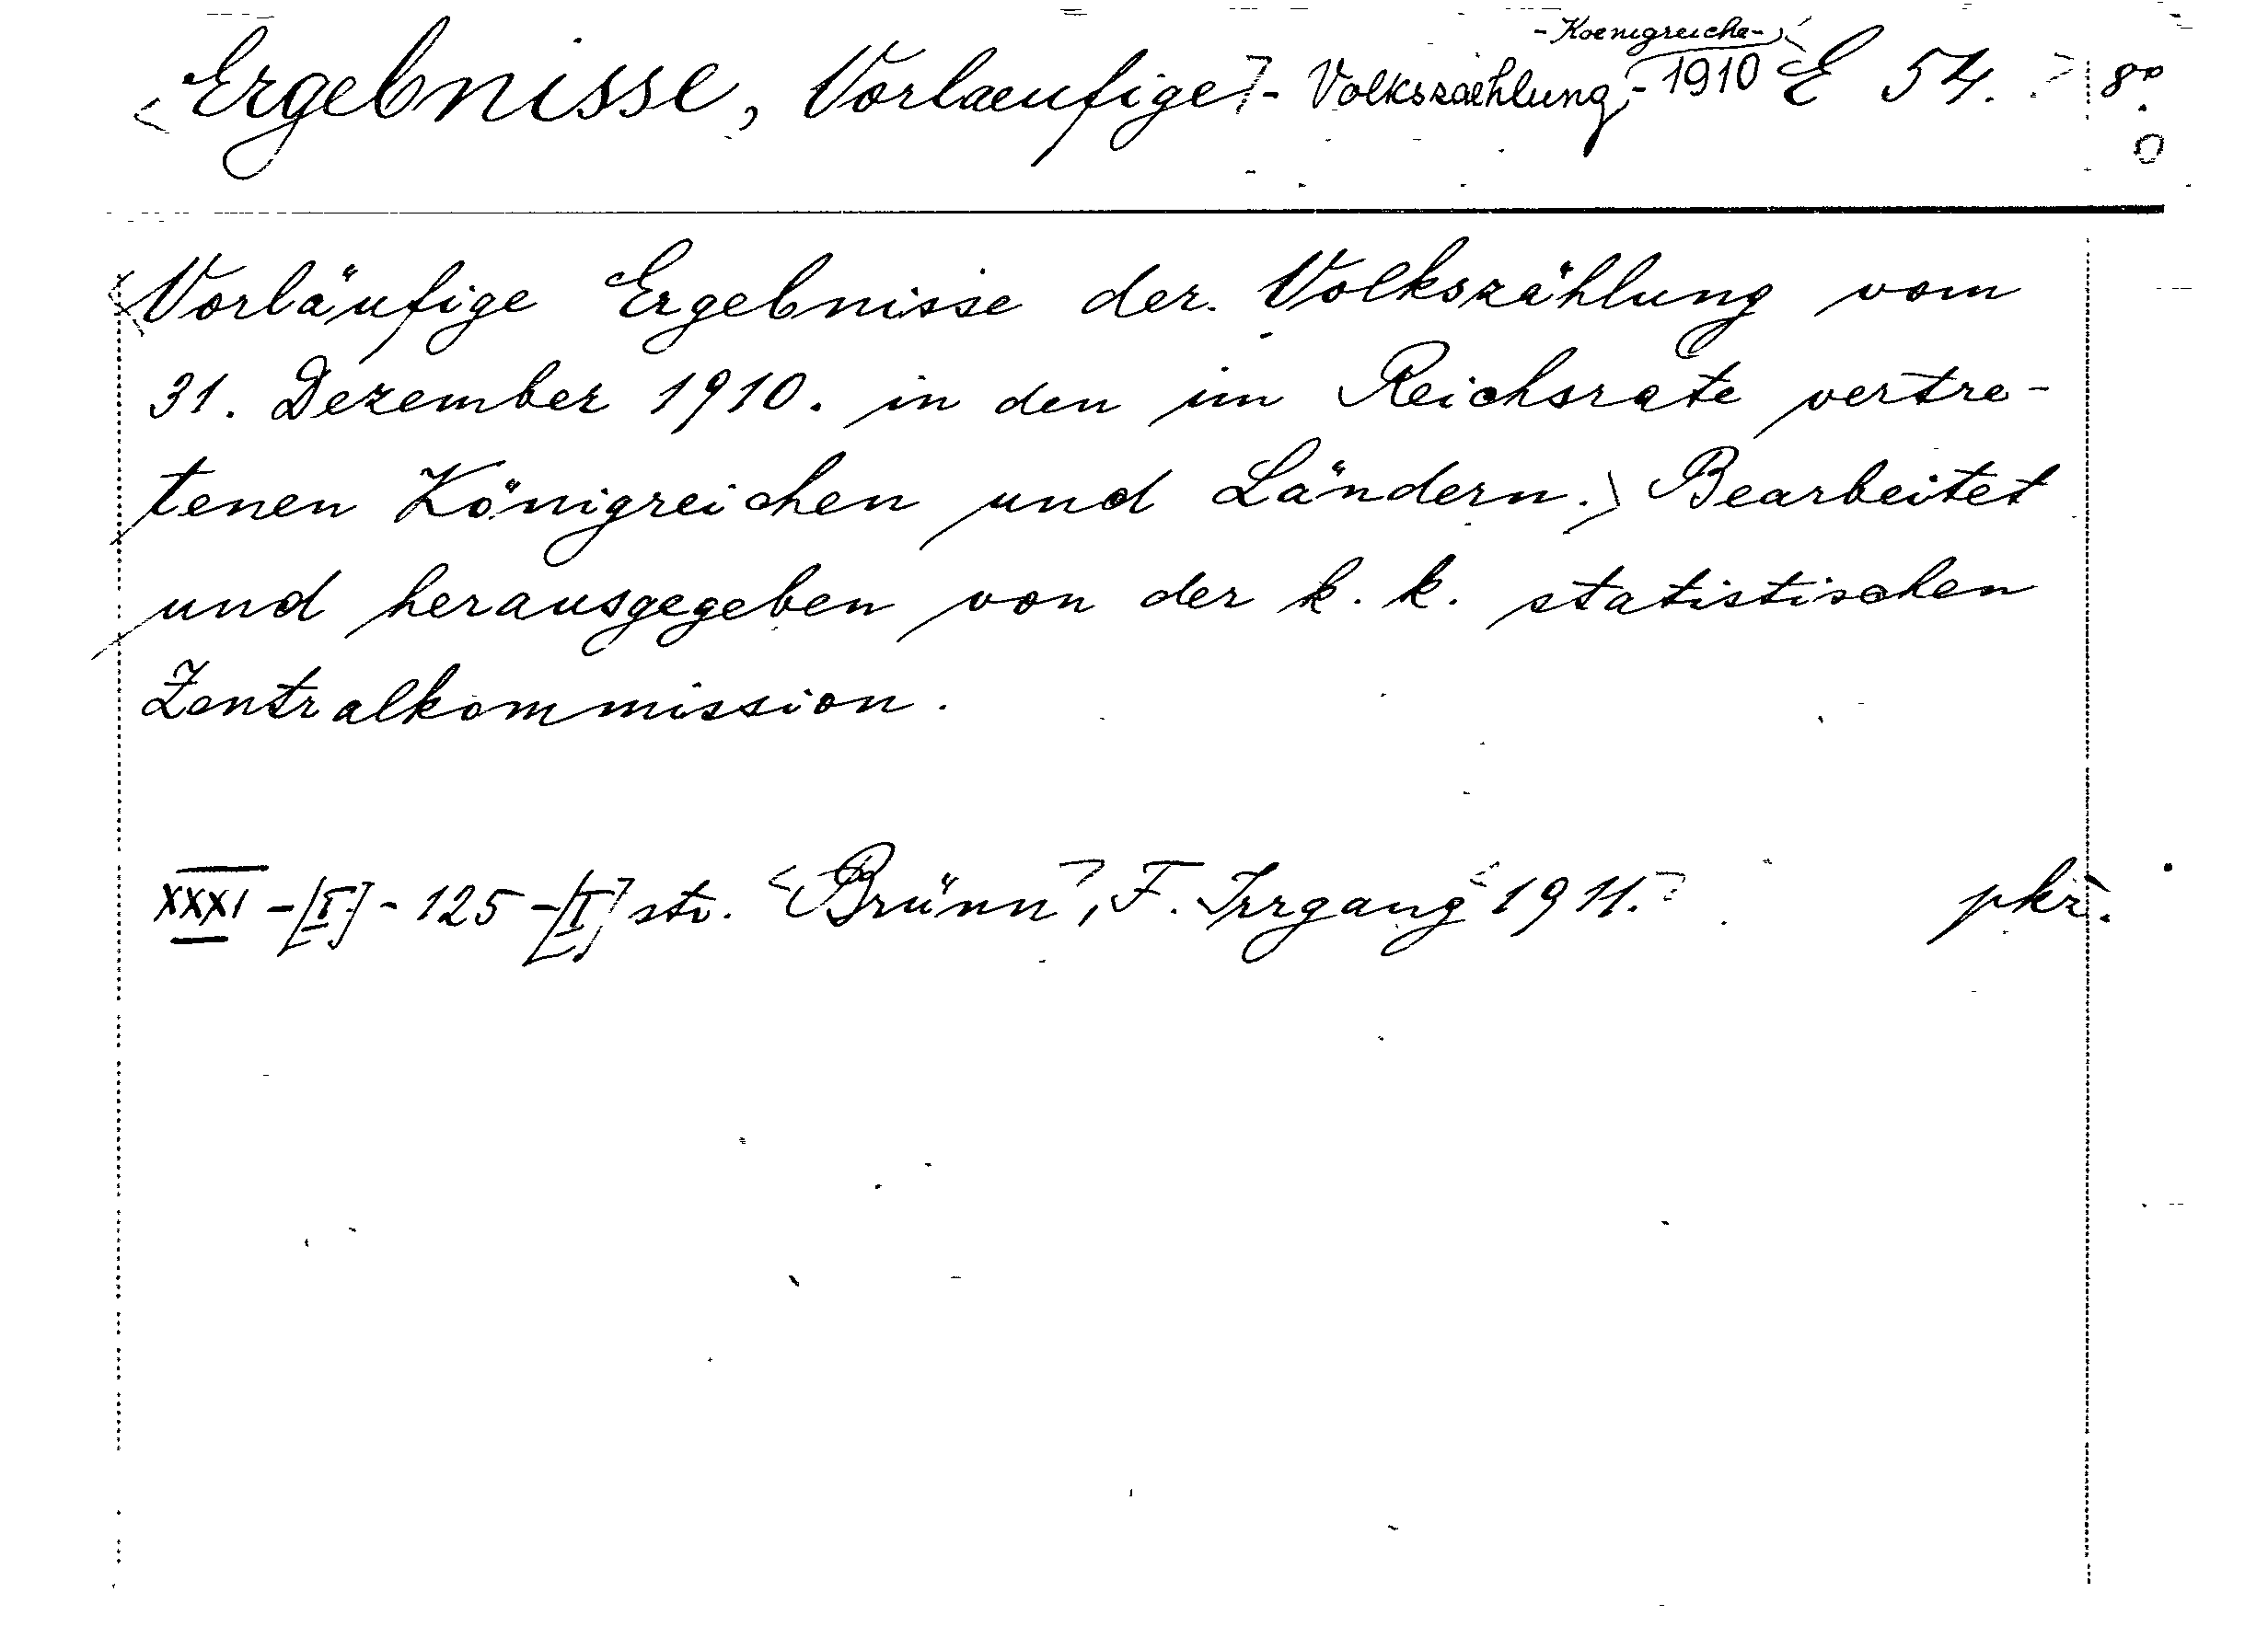 -Koenigreiche-
Ergebnisse, Vorlaeufige - Volkszaehlung, - 1910 E 54. 8°
Vorläufige Ergebnisse der Volkszählung vom
31. Dezember 1910. in den im Reichsrate vertre-
tenen Königreichen und Ländern. Bearbeitet
und herausgegeben von der k. k. statistischen
Zentralkommission.
XXXI -[I]- 125 -[I] str. Brünn, F. Irrgang 1911. pkř.